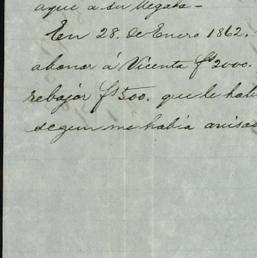 aqui a su llegada —
En 28. de Enero 1862.
abonar á Vicenta fs 2000.
rebajar fs 500. que le hab
segun me habia avisad